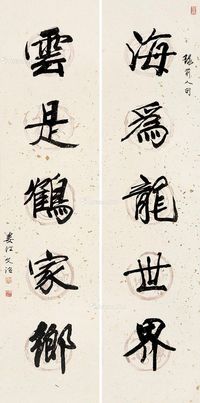 海為龍世界
雲是鶴家鄉
婁江文治